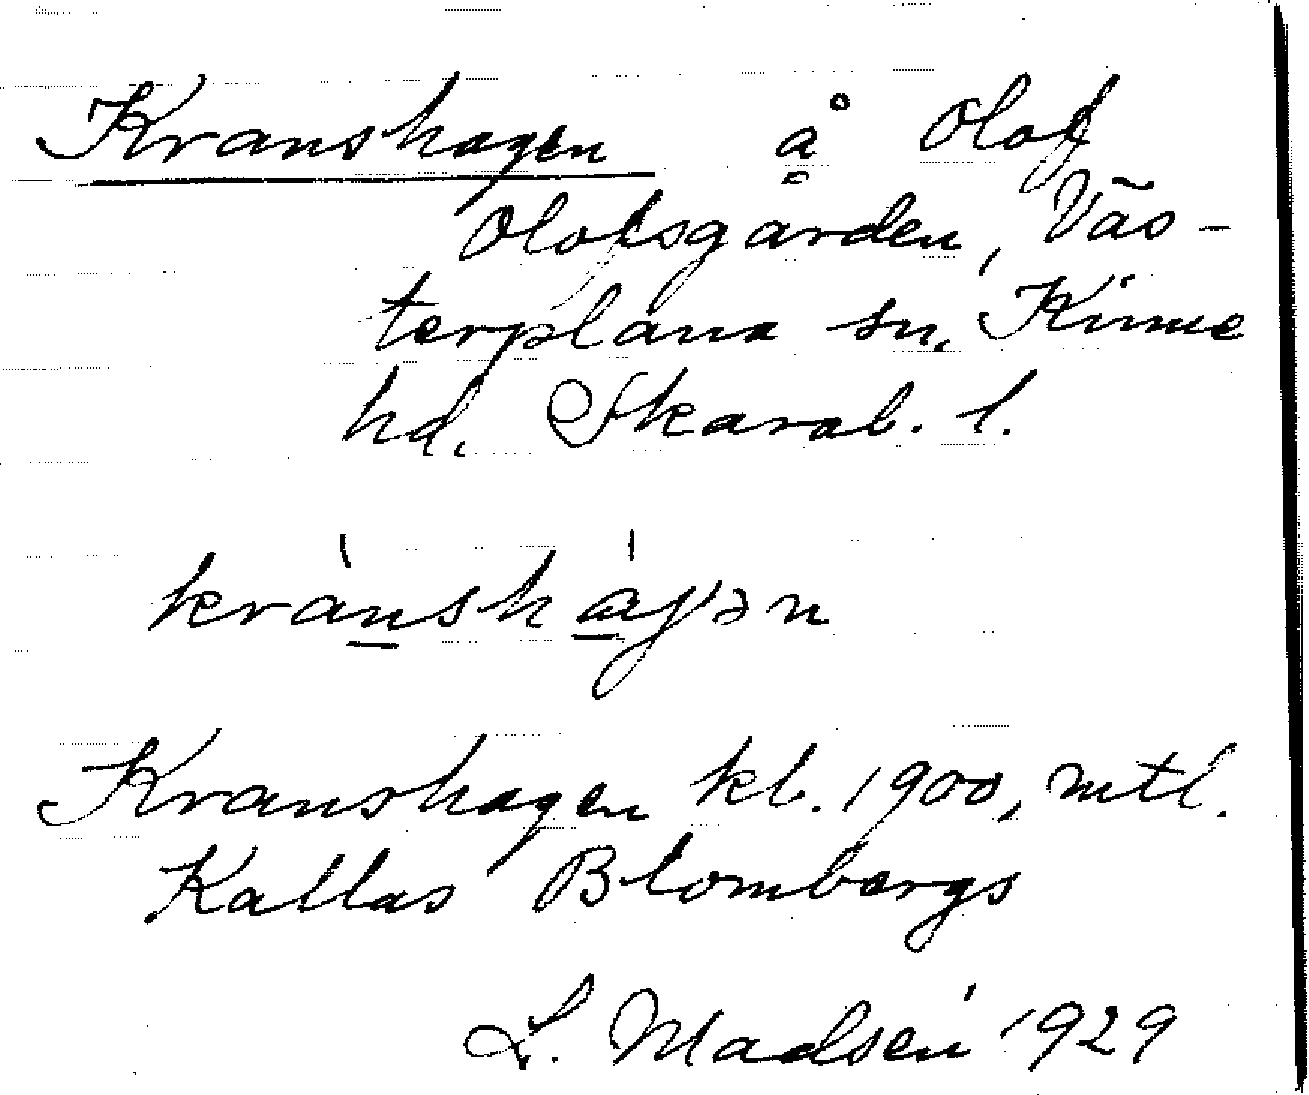 Kranshagen å Olof
Olofsgården, Väs-
terplana sn, Kinne
hd. Skarab. l.
krànshágən
Kranshagen kb. 1900, mtl.
Kallas Blombergs
L. Madsén 1929